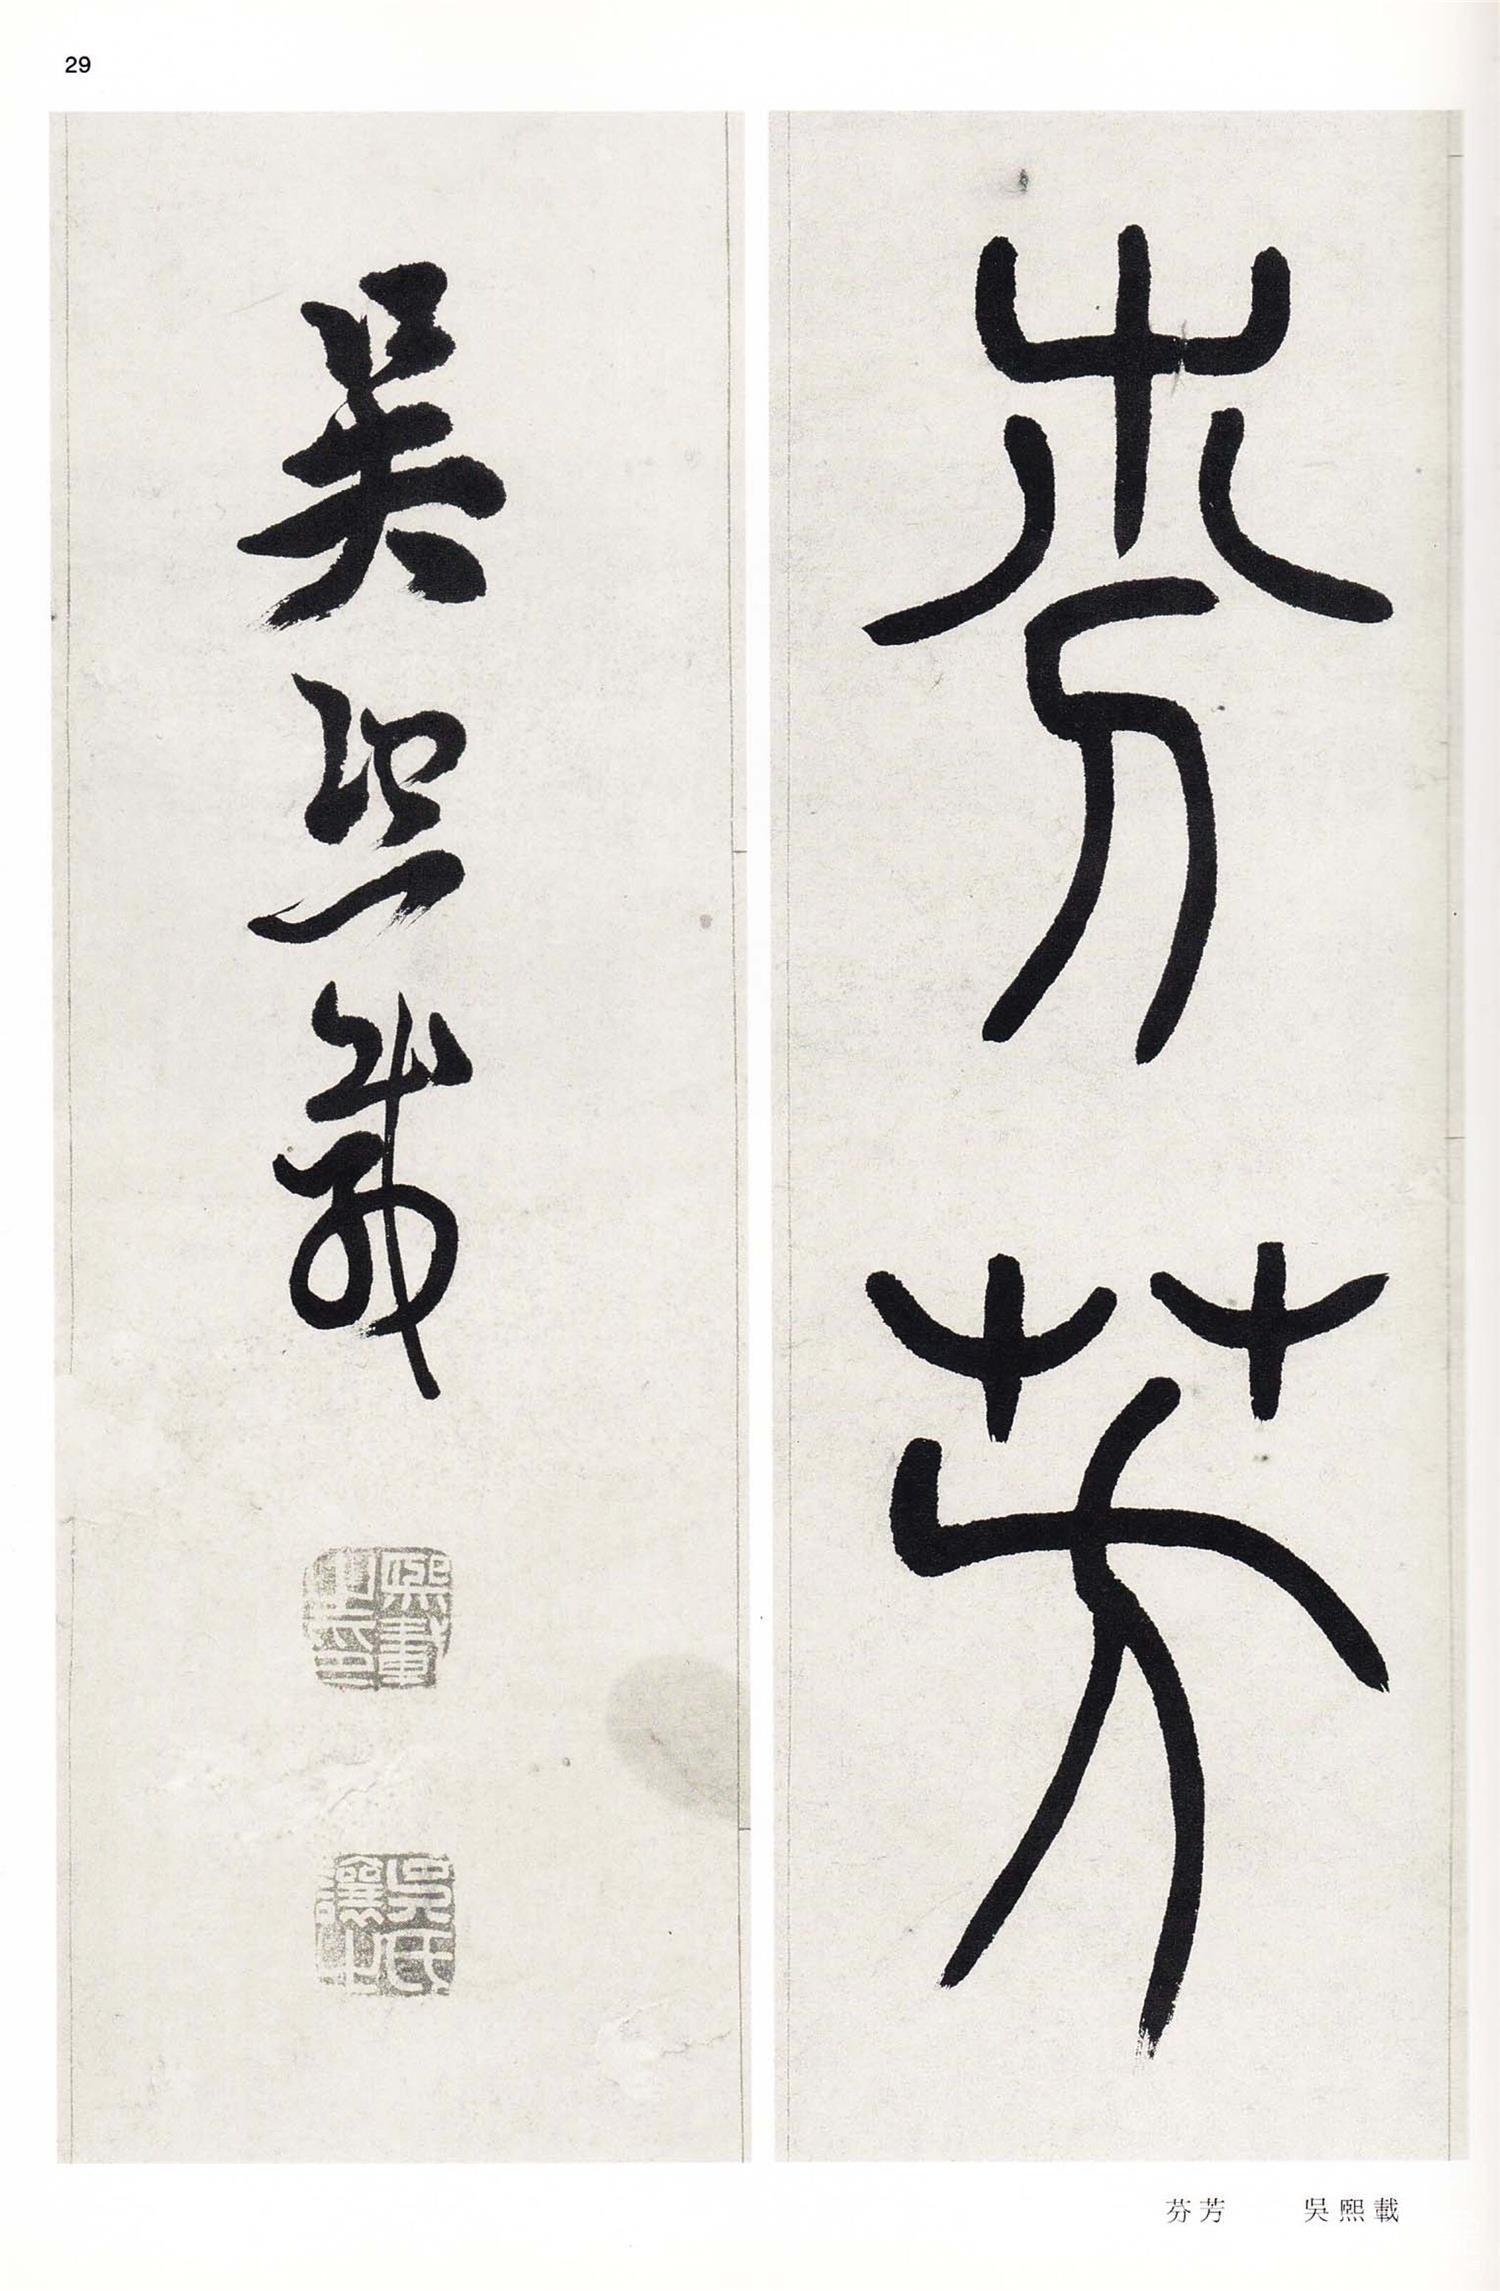 29
芬芳
吳熙載
熙載之印
吳氏讓之
芬芳 吳熙載